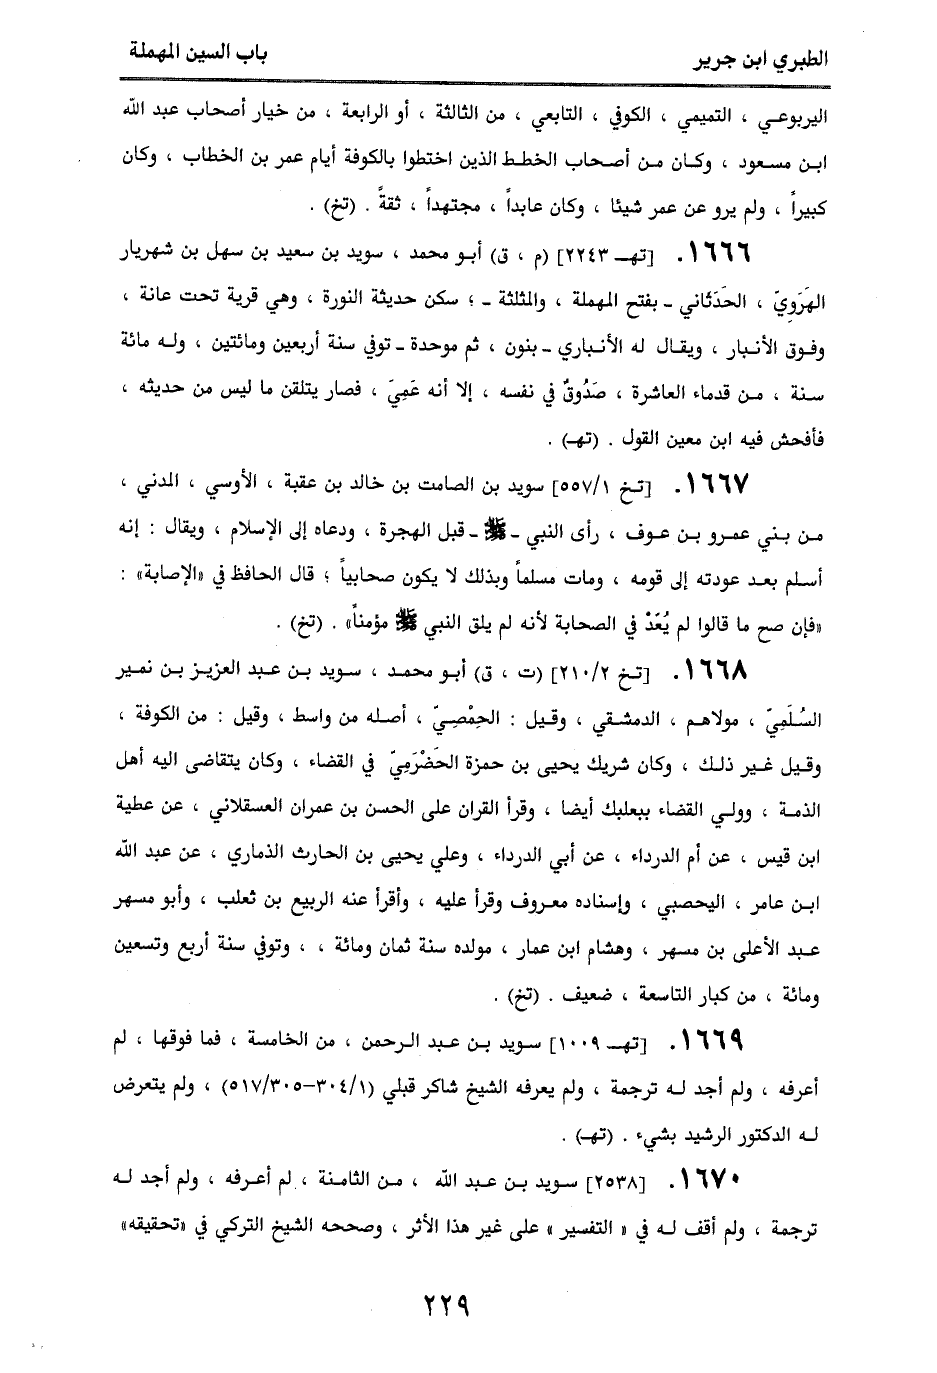 الطبري ابن جرير
باب السين المهملة
اليربوعي ، التميمي ، الكوفي ، التابعي ، من الثالثة ، أو الرابعة ، من خيار أصحاب عبد الله
ابن مسعود ، وكان من أصحاب الخطط الذين اختطوا بالكوفة أيام عمر بن الخطاب ، وكان
كبيراً ، ولم يرو عن عمر شيئا ، وكان عابداً ، مجتهداً ، ثقةً . (تخ) .
١٦٦٦. [تهـ ٢٢٤٣] (م ، ق) أبو محمد ، سويد بن سعيد بن سهل بن شهريار
الهَرَوِيّ ، الحَدَثَاني ـ بفتح المهملة ، والمثلثة ـ ؛ سكن حديثة النورة ، وهي قرية تحت عانة ،
وفوق الأنبار ، ويقال له الأنباري ـ بنون ، ثم موحدة ـ توفي سنة أربعين ومائتين ، وله مائة
سنة ، من قدماء العاشرة ، صَدُوقٌ في نفسه ، إلا أنه عَمِيَ ، فصار يتلقن ما ليس من حديثه ،
فأفحش فيه ابن معين القول . (تهـ) .
١٦٦٧. [تخ ٥٥٧/١] سويد بن الصامت بن خالد بن عقبة ، الأوسي ، المدني ،
من بني عمرو بن عوف ، رأى النبي ـ ﷺ ـ قبل الهجرة ، ودعاه إلى الإسلام ، ويقال : إنه
أسلم بعد عودته إلى قومه ، ومات مسلماً وبذلك لا يكون صحابياً ؛ قال الحافظ في «الإصابة» :
«فإن صح ما قالوا لم يُعَدْ في الصحابة لأنه لم يلق النبي ﷺ مؤمناً» . (تخ) .
١٦٦٨. [تخ ٢١٠/٢] (ت ، ق) أبو محمد ، سويد بن عبد العزيز بن نمير
السُلَمِيّ ، مولاهم ، الدمشقي ، وقيل : الحِمْصِيّ ، أصله من واسط ، وقيل : من الكوفة ،
وقيل غير ذلك ، وكان شريك يحيى بن حمزة الحَضْرَمِيّ في القضاء ، وكان يتقاضى اليه أهل
الذمة ، وولي القضاء ببعلبك أيضا ، وقرأ القران على الحسن بن عمران العسقلاني ، عن عطية
ابن قيس ، عن أم الدرداء ، عن أبي الدرداء ، وعلي يحيى بن الحارث الذماري ، عن عبد الله
ابن عامر ، اليحصبي ، وإسناده معروف وقرأ عليه ، وأقرأ عنه الربيع بن ثعلب ، وأبو مسهر
عبد الأعلى بن مسهر ، وهشام ابن عمار ، مولده سنة ثمان ومائة ، ، وتوفي سنة أربع وتسعين
ومائة ، من كبار التاسعة ، ضعيف . (تخ) .
١٦٦٩. [تهـ ١٠٠٩] سويد بن عبد الرحمن ، من الخامسة ، فما فوقها ، لم
أعرفه ، ولم أجد له ترجمة ، ولم يعرفه الشيخ شاكر قبلي (٣٠٤/١-٥١٧/٣٠٥) ، ولم يتعرض
له الدكتور الرشيد بشيء . (تهـ) .
١٦٧٠. [٢٥٣٨] سويد بن عبد الله ، من الثامنة ، لم أعرفه ، ولم أجد له
ترجمة ، ولم أقف له في « التفسير » على غير هذا الأثر ، وصححه الشيخ التركي في «تحقيقه»
٢٢٩